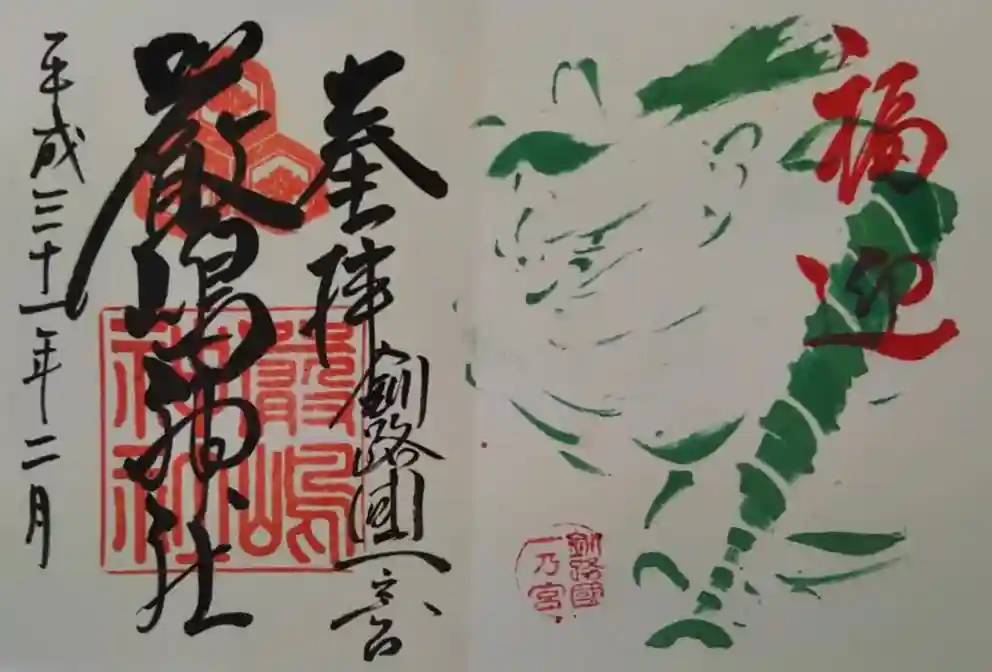 福迎
釧路國
一乃宮
奉拝
釧路國一之宮
厳嶋神社
嚴嶋
神社
平成三十一年二月